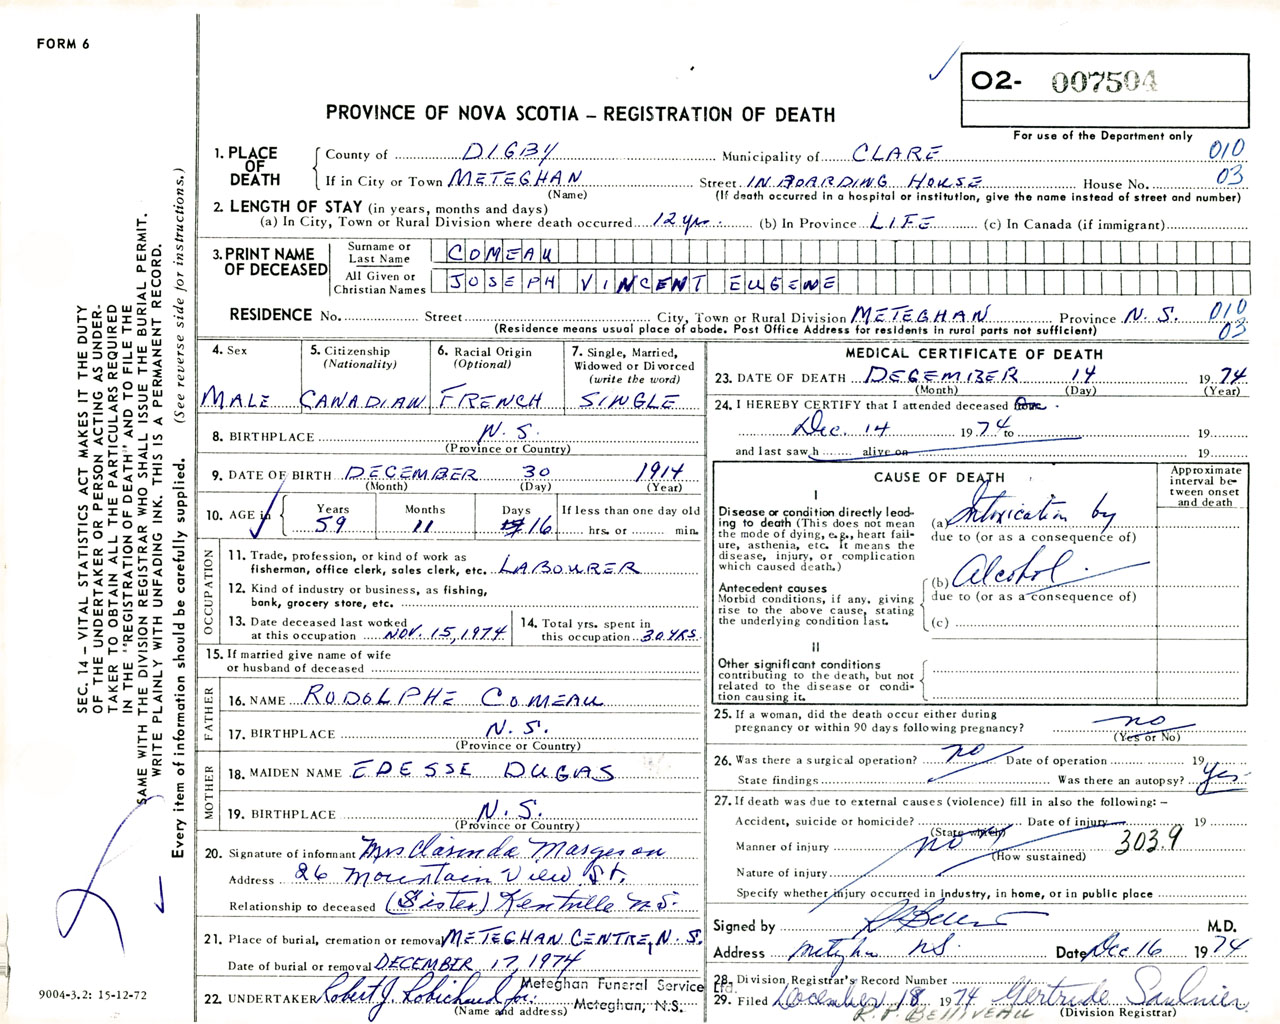 FORM 6
O2- 007504
PROVINCE OF NOVA SCOTIA – REGISTRATION OF DEATH
For use of the Department only
1. PLACE OF DEATH
County of DIGBY Municipality of CLARE 010
If in City or Town METEGHAN Street IN BOARDING HOUSE House No. 03
(Name) (If death occurred in a hospital or institution, give the name instead of street and number)
2. LENGTH OF STAY (in years, months and days)
(a) In City, Town or Rural Division where death occurred 12 yrs. (b) In Province LIFE (c) In Canada (if immigrant)
3. PRINT NAME OF DECEASED
Surname or Last Name COMEAU
All Given or Christian Names JOSEPH VINCENT EUGENE
RESIDENCE No. Street City, Town or Rural Division METEGHAN Province N. S. 010
(Residence means usual place of abode. Post Office Address for residents in rural parts not sufficient) 03
4. Sex
MALE
5. Citizenship
(Nationality)
CANADIAN
6. Racial Origin
(Optional)
FRENCH
7. Single, Married,
Widowed or Divorced
(write the word)
SINGLE
8. BIRTHPLACE N. S.
(Province or Country)
9. DATE OF BIRTH DECEMBER 30 1914
(Month) (Day) (Year)
10. AGE in
Years 59
Months 11
Days 16
If less than one day old
hrs. or min.
OCCUPATION
11. Trade, profession, or kind of work as
fisherman, office clerk, sales clerk, etc. LABOURER
12. Kind of industry or business, as fishing,
bank, grocery store, etc.
13. Date deceased last worked
at this occupation NOV. 15, 1974
14. Total yrs. spent in
this occupation 30 YRS.
15. If married give name of wife
or husband of deceased
FATHER
16. NAME RODOLPHE COMEAU
17. BIRTHPLACE N. S.
(Province or Country)
MOTHER
18. MAIDEN NAME EDESSE DUGAS
19. BIRTHPLACE N. S.
(Province or Country)
20. Signature of informant Mrs Clarinda Margeson
Address 26 Mountain View St.
Relationship to deceased (Sister) Kentville N.S.
21. Place of burial, cremation or removal METEGHAN CENTRE, N. S.
Date of burial or removal DECEMBER 17, 1974
22. UNDERTAKER Robert J. Robichaud
Meteghan Funeral Service Ltd.
(Name and address) Meteghan, N.S.
MEDICAL CERTIFICATE OF DEATH
23. DATE OF DEATH DECEMBER 14 1974
(Month) (Day) (Year)
24. I HEREBY CERTIFY that I attended deceased
Dec. 14 1974 to 19
and last saw h alive on 19
CAUSE OF DEATH
Approximate
interval be-
tween onset
and death
I
Disease or condition directly lead-
ing to death (This does not mean
the mode of dying, e.g., heart fail-
ure, asthenia, etc. It means the
disease, injury, or complication
which caused death.)
(a) Intoxication by
due to (or as a consequence of)
Antecedent causes
Morbid conditions, if any, giving
rise to the above cause, stating
the underlying condition last.
(b) Alcohol
due to (or as a consequence of)
(c)
II
Other significant conditions
contributing to the death, but not
related to the disease or condi-
tion causing it.
25. If a woman, did the death occur either during
pregnancy or within 90 days following pregnancy? no
(Yes or No)
26. Was there a surgical operation? no Date of operation 19
State findings Was there an autopsy? yes
27. If death was due to external causes (violence) fill in also the following: –
Accident, suicide or homicide? Date of injury 19
(State which)
Manner of injury no 303.9
(How sustained)
Nature of injury
Specify whether injury occurred in industry, in home, or in public place
Signed by M.D.
Address Meteghan N.S. Date Dec 16 1974
28. Division Registrar's Record Number
29. Filed December 18 1974 Gertrude Saulnier
R. P. BELLIVEAU (Division Registrar)
SEC. 14 – VITAL STATISTICS ACT MAKES IT THE DUTY
OF THE UNDERTAKER OR PERSON ACTING AS UNDER-
TAKER TO OBTAIN ALL THE PARTICULARS REQUIRED
IN THE "REGISTRATION OF DEATH" AND TO FILE THE
SAME WITH THE DIVISION REGISTRAR WHO SHALL ISSUE THE BURIAL PERMIT.
WRITE PLAINLY WITH UNFADING INK. THIS IS A PERMANENT RECORD.
Every item of information should be carefully supplied. (See reverse side for instructions.)
9004-3.2: 15-12-72